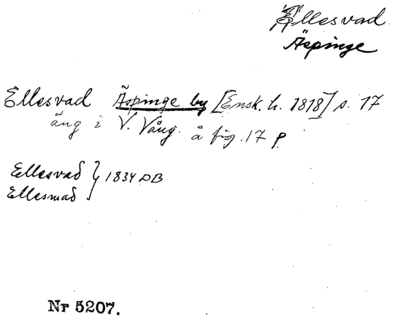 Ellesvad
Äspinge
Ellesvad Äspinge by [Ensk. h. 1818] s. 17
äng i V. Vång. å fig. 17 p
Ellesvad } 1834 DB
Ellesmad
Nr 5207.